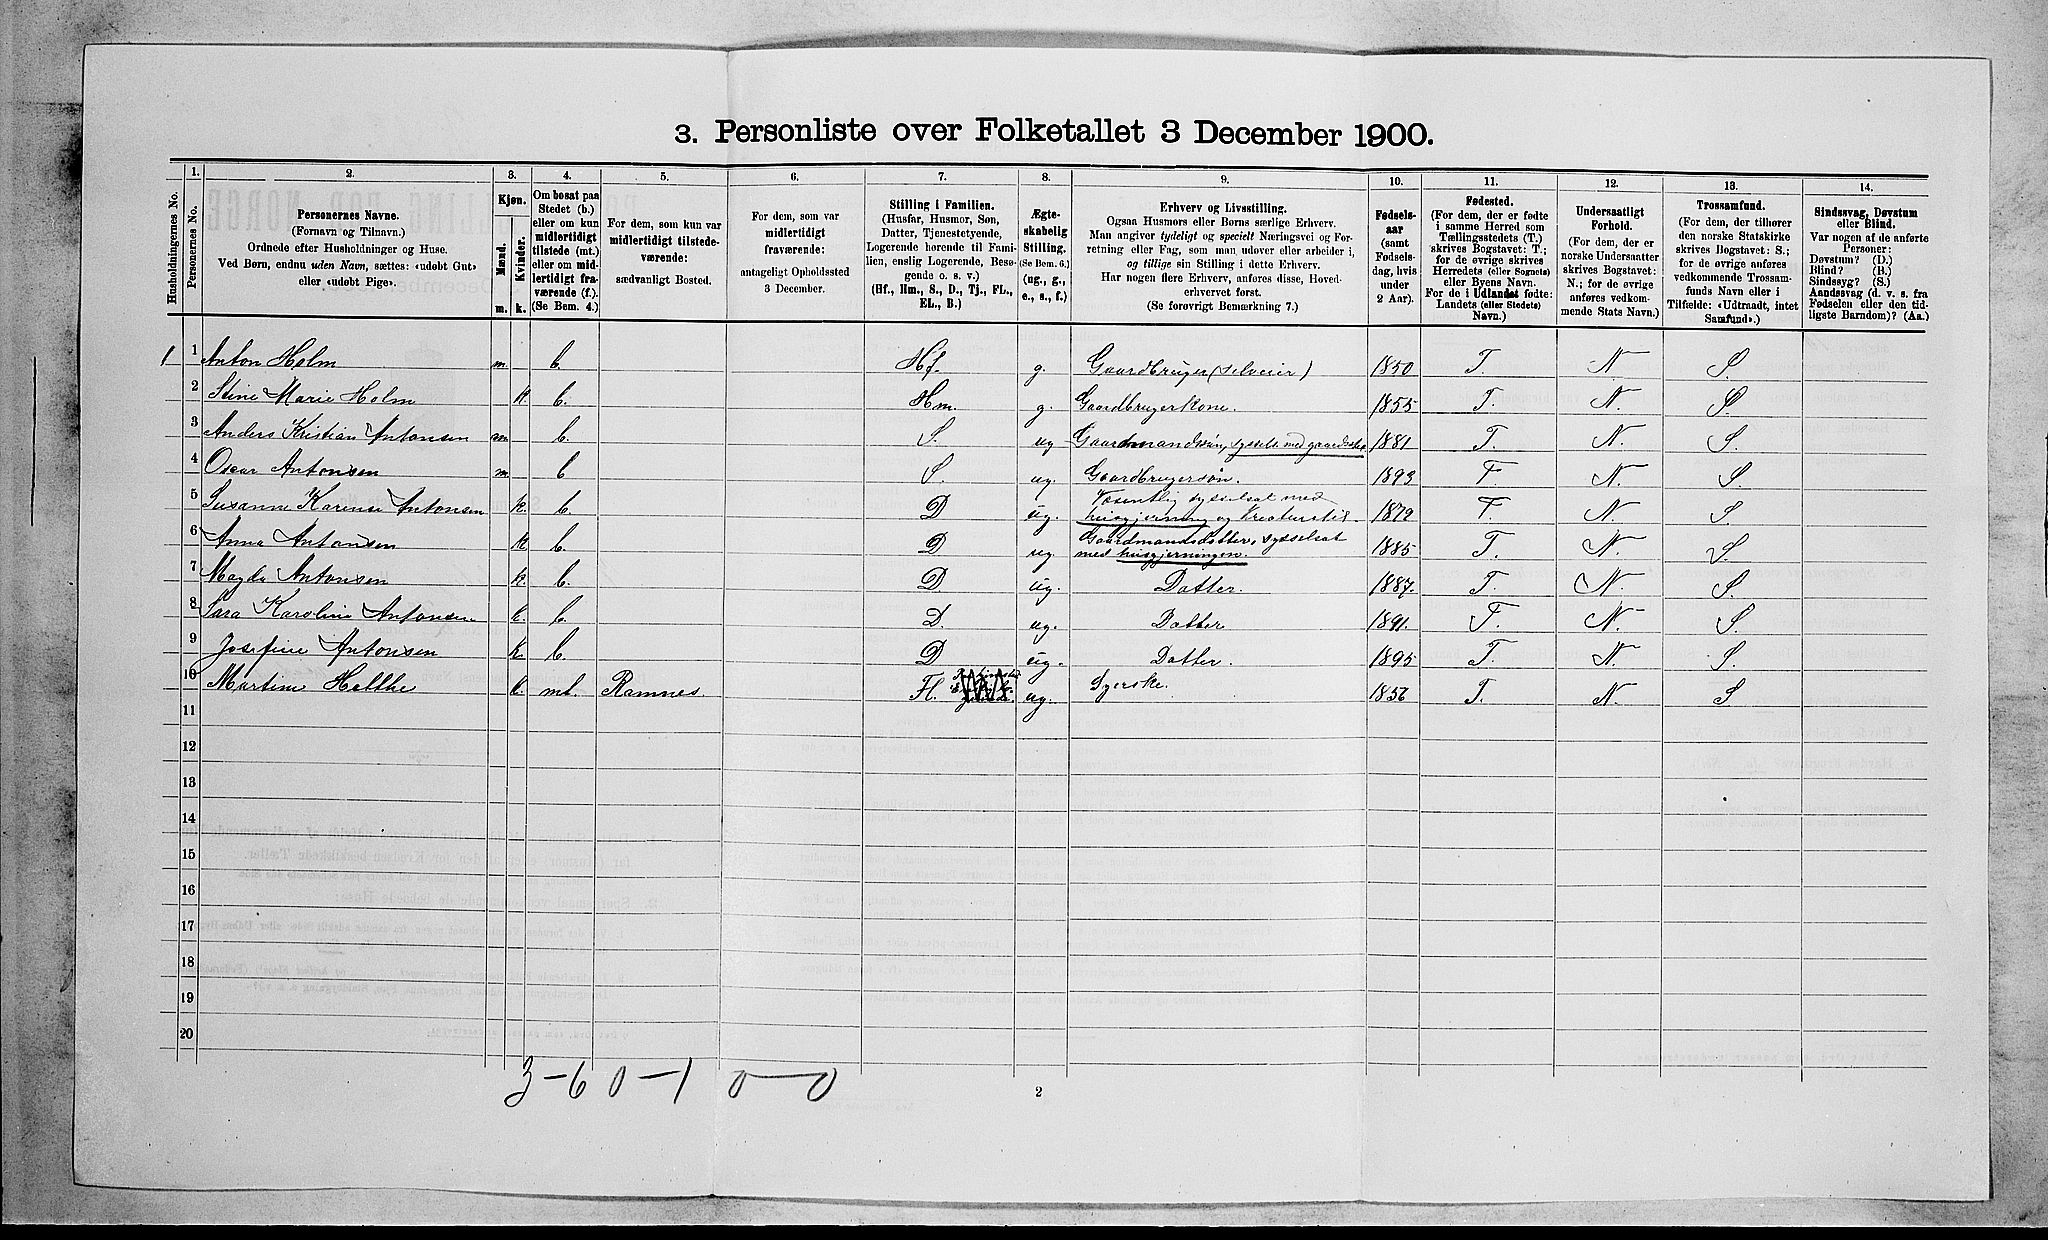 3. Personliste over Folketallet 3 December 1900.
Husholdningernes No.
1.
Personernes No.
2.
Personernes Navne.
(Fornavn og Tilnavn.)
Ordnede efter Husholdninger og Huse.
Ved Børn, endnu uden Navn, sættes: «udøbt Gut»
eller «udøbt Pige».
3.
Kjøn.
Mænd.
Kvinder.
m.
k.
4.
Om bosat paa
Stedet (b.)
eller om kun
midlertidigt
tilstede (mt.)
eller om mid-
lertidigt fra-
værende (f.).
(Se Bem. 4.)
5.
For dem, som kun var
midlertidigt tilstede-
værende:
sædvanligt Bosted.
6.
For dem, som var
midlertidigt
fraværende:
antageligt Opholdssted
3 December.
7.
Stilling i Familien.
(Husfar, Husmor, Søn,
Datter, Tjenestetyende,
Logerende hørende til Fami-
lien, enslig Logerende, Besø-
gende o. s. v.)
(Hf., Hm., S., D., Tj., FL.,
EL., B.)
8.
Ægte-
skabelig
Stilling.
(Se Bem. 6.)
(ug., g.,
e., s., f.)
9.
Erhverv og Livsstilling.
Ogsaa Husmors eller Børns særlige Erhverv.
Man angiver tydeligt og specielt Næringsvei og For-
retning eller Fag, som man udøver eller arbeider i,
og tillige sin Stilling i dette Erhverv.
Har nogen flere Erhverv, anføres disse, Hoved-
erhvervet først.
(Se forøvrigt Bemærkning 7.)
10.
Fødsels-
aar
(samt
Fødsels-
dag, hvis
under
2 Aar).
11.
Fødested.
(For dem, der er fødte
i samme Herred som
Tællingsstedets (T.)
skrives Bogstavet: T.;
for de øvrige skrives
Herredets (eller Sognets)
eller Byens Navn.
For de i Udlandet fødte:
Landets (eller Stedets)
Navn.)
12.
Undersaatligt
Forhold.
(For dem, der er
norske Undersaatter
skrives Bogstavet:
N.; for de øvrige
anføres vedkom-
mende Stats Navn.)
13.
Trossamfund.
(For dem, der tilhører
den norske Statskirke
skrives Bogstavet: S.;
for de øvrige anføres
vedkommende Trossam-
funds Navn eller i
Tilfælde: «Udtraadt, intet
Samfund».)
14.
Sindssvag, Døvstum
eller Blind.
Var nogen af de anførte
Personer:
Døvstum? (D.)
Blind? (B.)
Sindssyg? (S.)
Aandssvag (d. v. s. fra
Fødselen eller den tid-
ligste Barndom)? (Aa.)
1 1 Anton Holm m. b. Hf. g. Gaardbruger (selveier) 1850 T. N S.
2 Stine Marie Holm k. b. Hm. g. Gaardbrugerkone. 1855 T. N. S
3 Anders Kristian Antonsen m b. S. ug Gaardmandssøn, syssels. med gaardsar. 1881 T. N. S.
4 Oscar Antonsen m. b S. ug. Gaardbrugersøn. 1893 T. N. S
5 Susanne Karense Antonsen k. b. D ug. Væsentlig sysselsat med
husgjerning og Kreaturstel. 1879 T. N. S.
6 Anna Antonsen k b. D ug. Gaardmandsdatter, sysselsat
med husgjerningen. 1885 T. N. S
7 Magda Antonsen k. b. D. ug. Datter. 1887. T. N. S.
8 Sara Karoline Antonsen k. b. D. ug. Datter 1891. T. N. S.
9 Josefine Antonsen k. b. D ug. Datter. 1895 T. N. S.
10 Martine Holthe k. mt. Ramnes. Fl. ug. Syerske. 1856 T. N. S
11
12
13
14
15
16
17
18
19
20
3-6 0-1 0-0
2